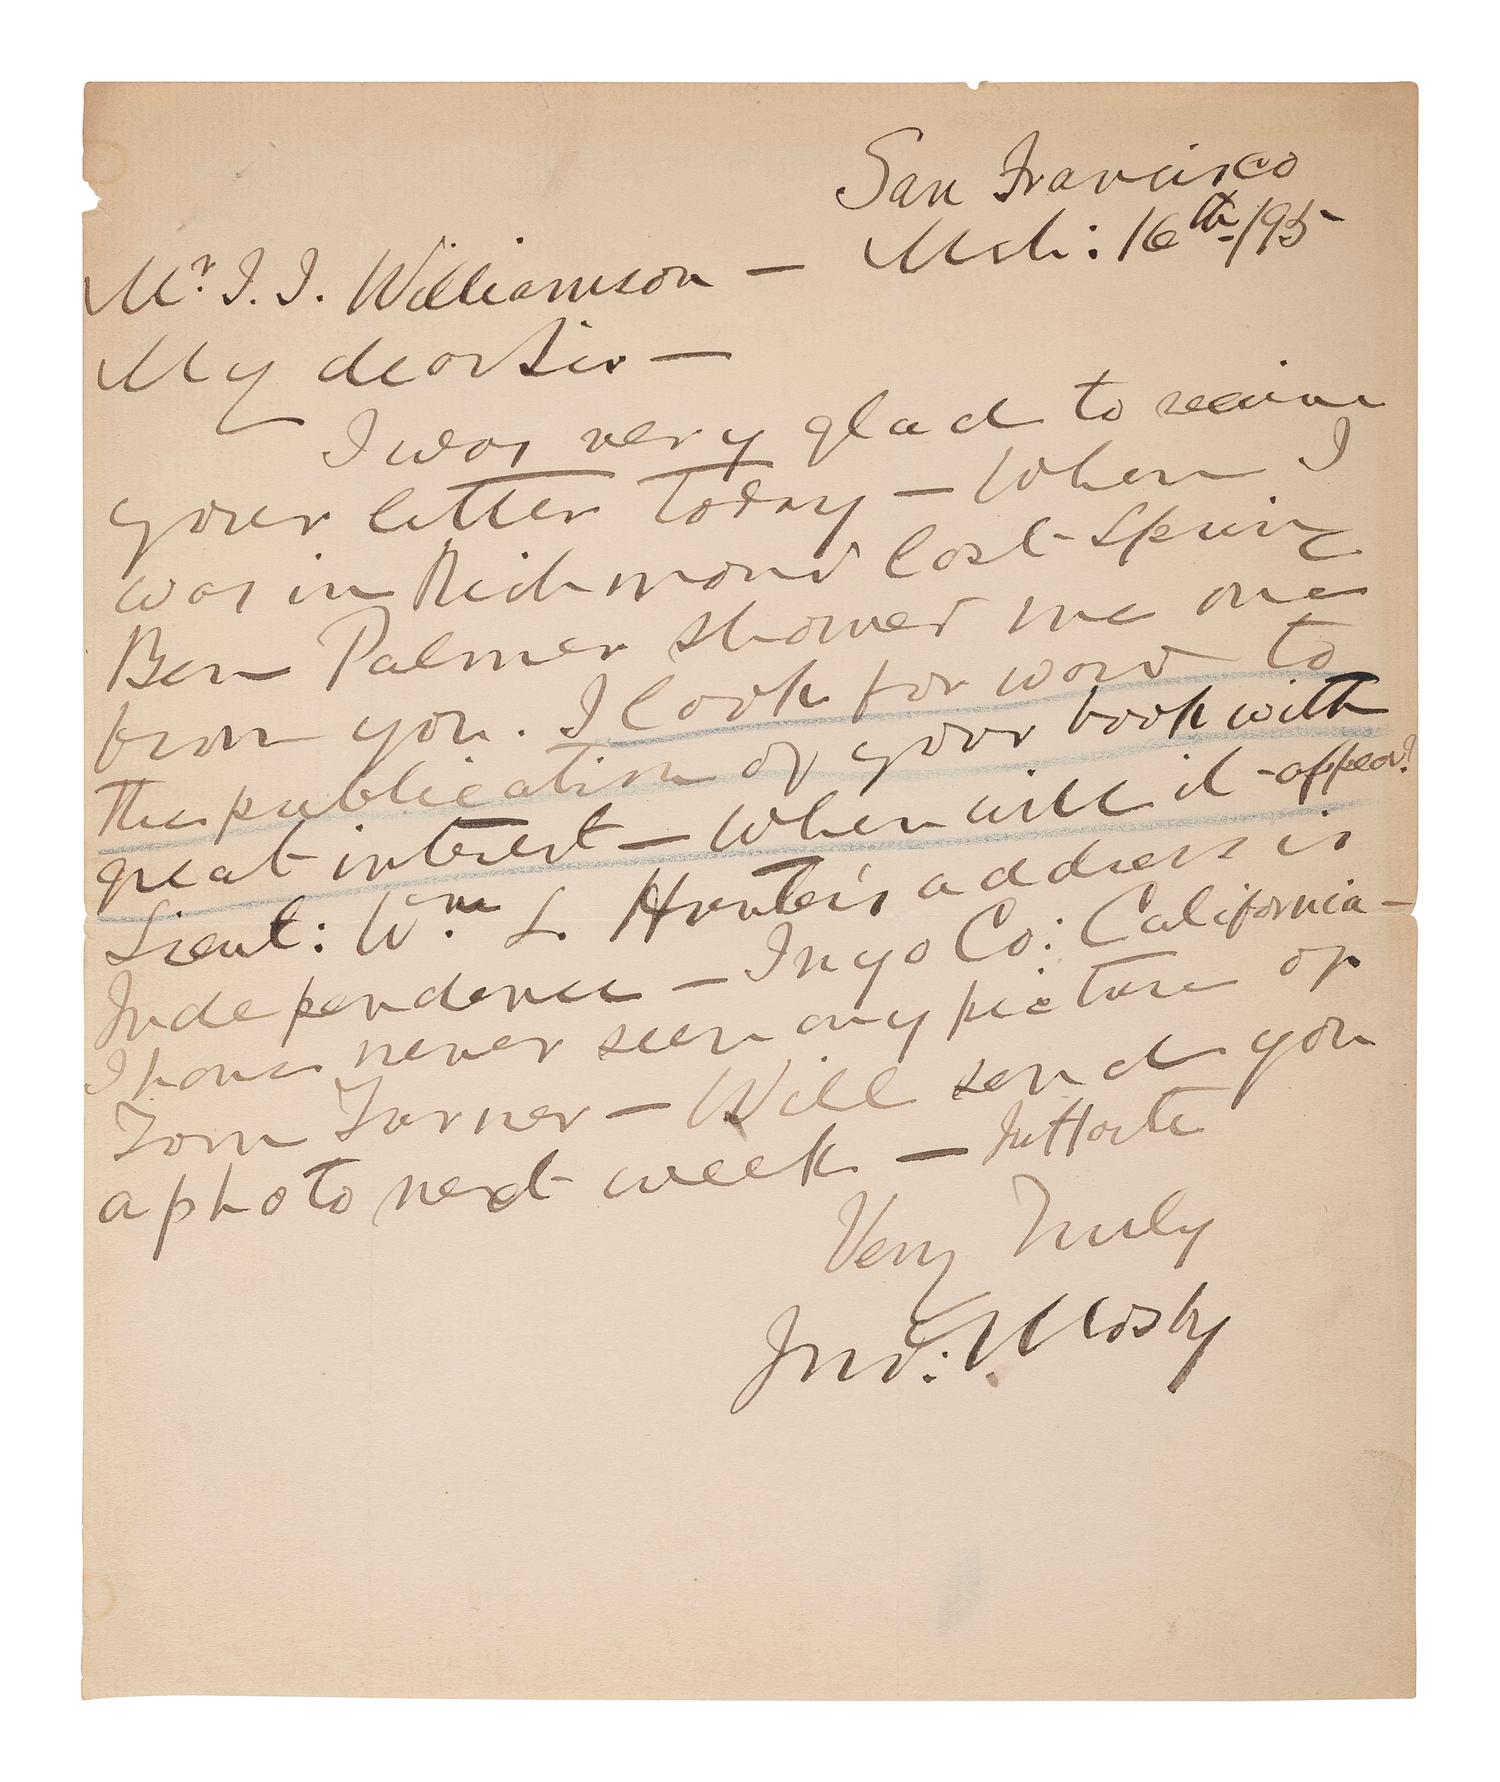 San Francisco
Mch: 16th/95
Mr. J. J. Williamson —
My dear Sir —
I was very glad to receive
your letter today — When I
was in Richmond last Spring
Ben Palmer showed me one
from you. I look forward to
the publication of your book with
great interest — When will it appear?
Lieut: Wm. L. Hunter's address is
Independence — Inyo Co: California —
I have never seen any picture of
Tom Turner — Will send you
a photo next week — In Haste
Very Truly
Jno: S. Mosby